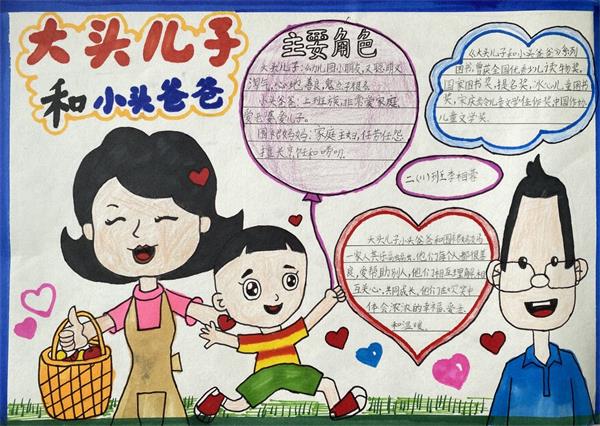 大头儿子
和小头爸爸
主要角色
大头儿子:幼儿园小朋友,又聪明又
淘气,心地善良,鬼点子很多
小头爸爸:上班族,非常爱家庭,
爱老婆,爱儿子。
围裙妈妈:家庭主妇,任劳任怨
擅长烹饪和唠叨。
《大头儿子和小头爸爸》系列
图书,曾获全国优秀幼儿读物奖,
国家图书奖,提名奖,冰心儿童图书
奖,宋庆龄儿童文学佳作奖,中国作协
儿童文学奖。
二(11)班李相蓉
大头儿子小头爸爸和围裙妈妈
一家人其乐融融,他们每个人都很善
良,爱帮助别人,他们相互理解,相
互关心,共同成长,他们在欢笑中
体会浓浓的幸福、爱意
和温暖